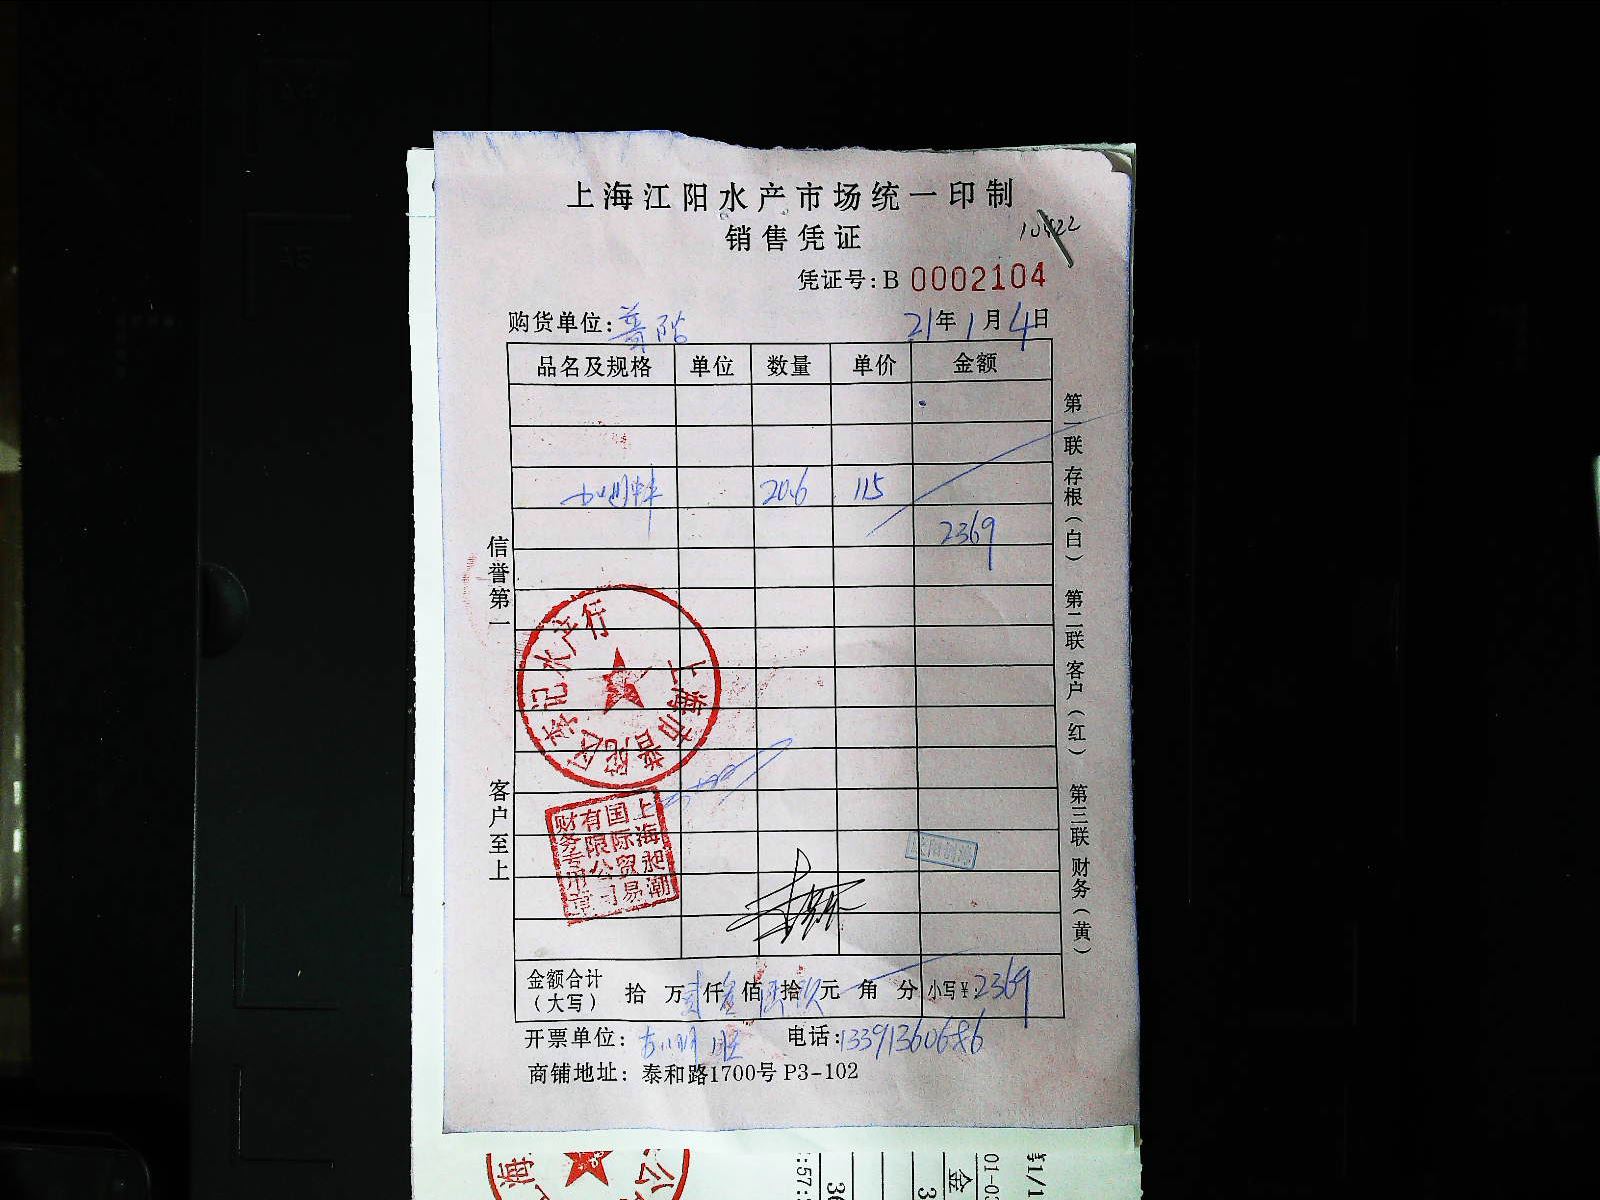 上海江阳水产市场统一印制
销售凭证
凭证号:B 0002104
购货单位:普陀 21年1月4日
品名及规格 单位 数量 单价 金额
20.6 115
2369
信誉第一
客户至上
第一联 存根(白) 第二联 客户(红) 第三联 财务(黄)
上海市普陀区李记水产行
上海昶潮
国际贸易
有限公司
财务专用章
金额合计(大写) 拾 万 贰 仟 叁 佰 陆 拾 玖 元 角 分 小写¥:2369
开票单位: 电话:13391360686
商铺地址:泰和路1700号 P3-102
海
公